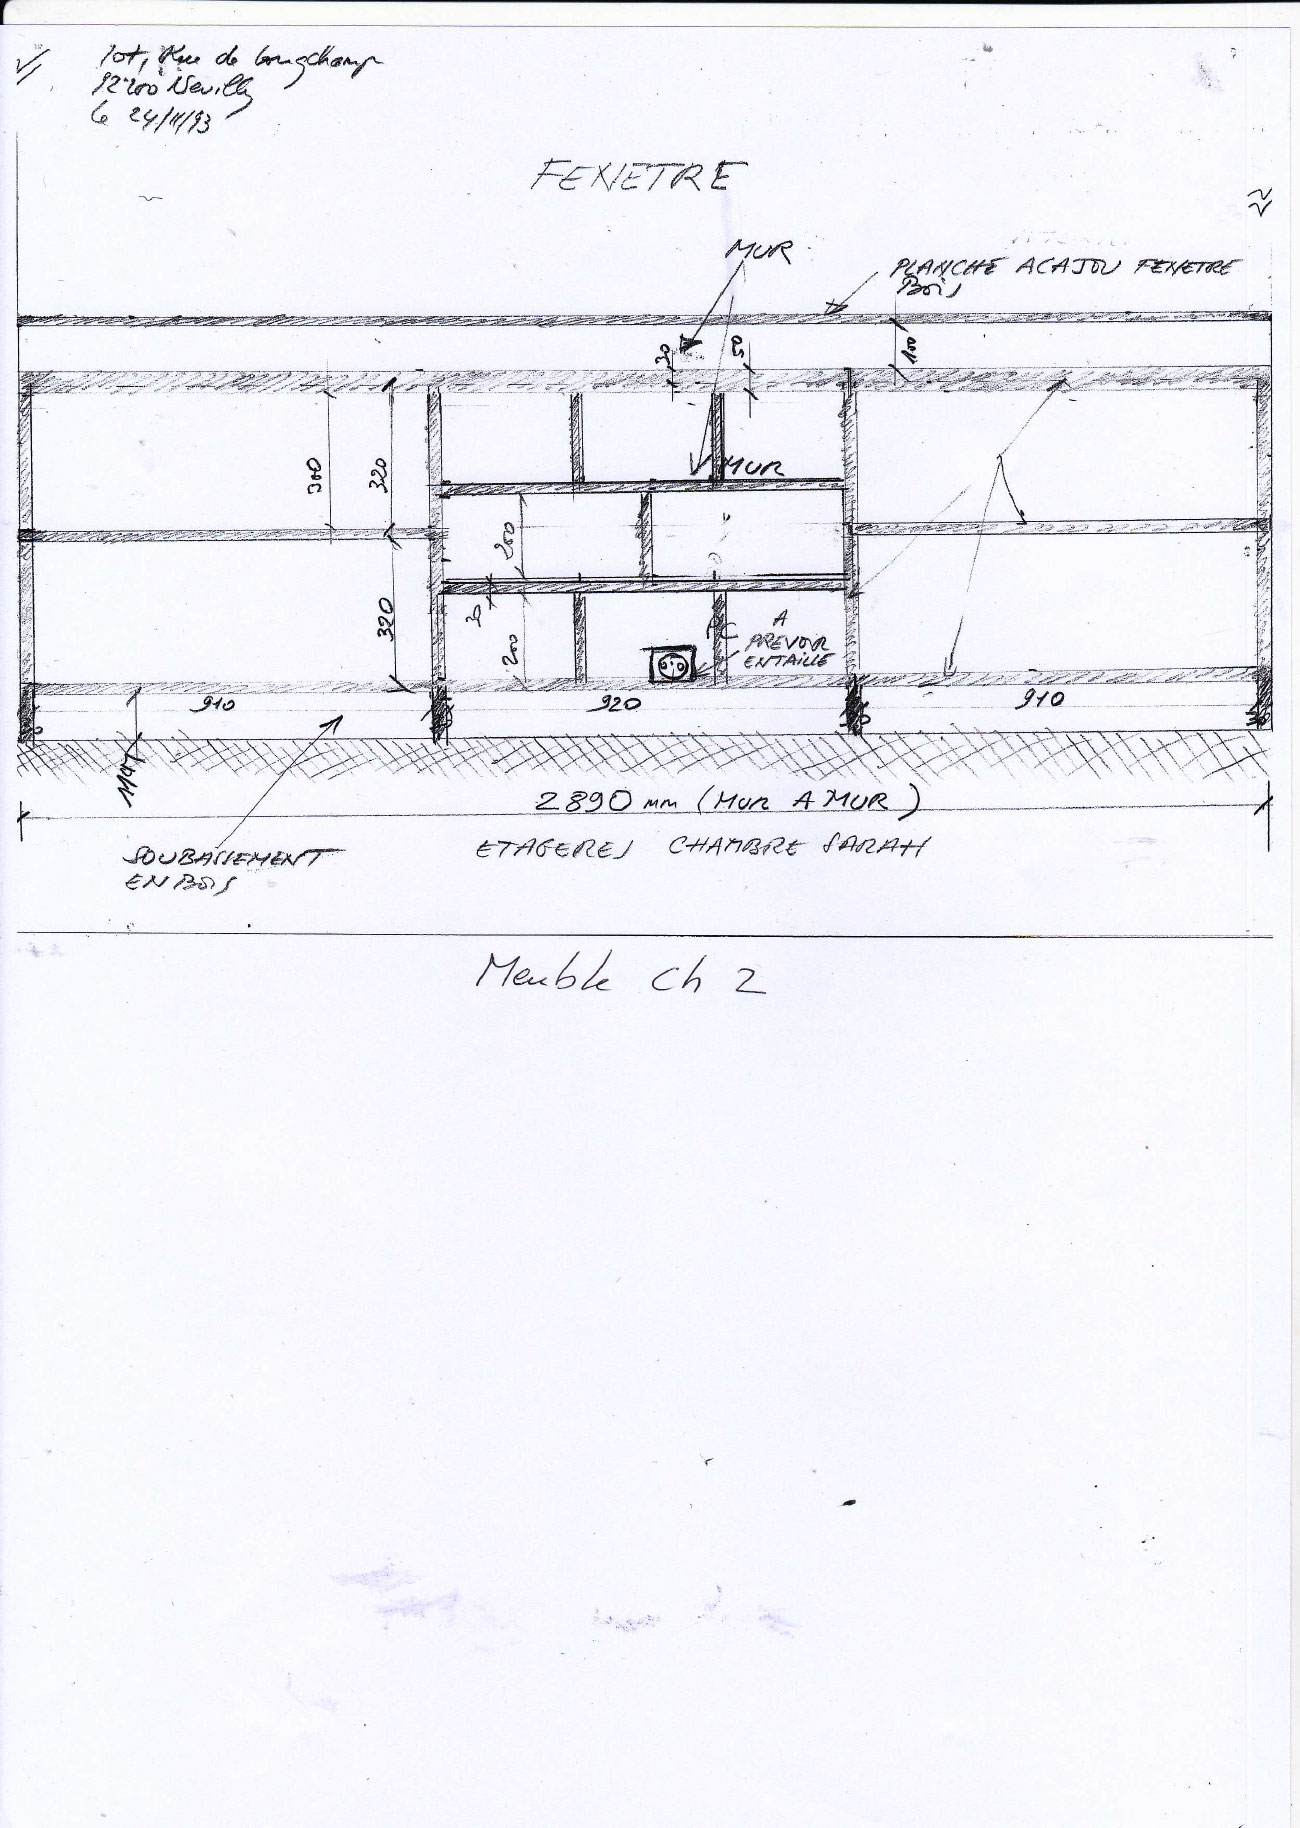 Rue de Longchamp
92200 Neuilly
le 24/11/93
FENETRE
MUR
PLANCHE ACAJOU FENETRE
BOIS
30
50
100
300
320
MUR
200
320
30
200
PC
A
PREVOIR
ENTAILLE
910
920
910
2890 mm (MUR A MUR)
SOUBASSEMENT
EN BOIS
ETAGERES CHAMBRE SARAH
Meuble Ch 2